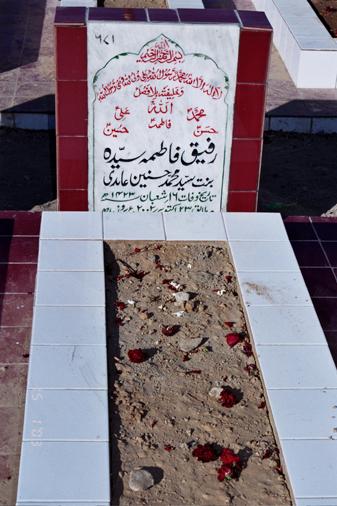 ۶۷۱
بسم اللہ الرحمن الرحیم
لا الہ الا اللہ محمد رسول اللہ علی ولی اللہ وصی رسول اللہ
و خلیفتہ بلا فصل
محمدؐ اللہ علیؑ
حسنؑ فاطمہؑ حسینؑ
رفیق فاطمہ سیدہ
بنت سید محمد حسنین عابدی
تاریخ وفات ۱۶ شعبان ۱۴۲۳ھ
۲۳ اکتوبر ۲۰۰۲ء